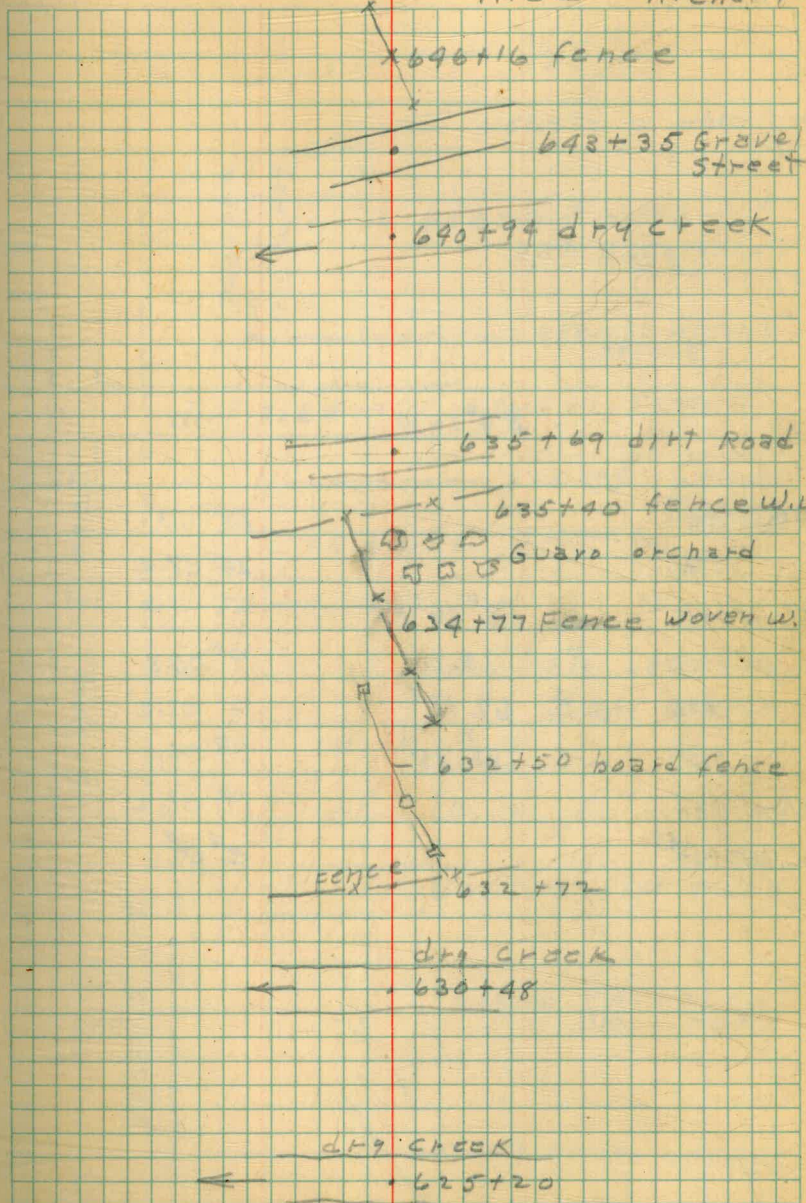 646+16 fence
643+35 Gravel
Street
640+94 dry creek
635+69 dirt Road
635+40 fence W.
Guavo orchard
634+77 Fence Woven W.
632+50 board fence
Fence
632+72
dry creek
630+48
dry creek
625+20